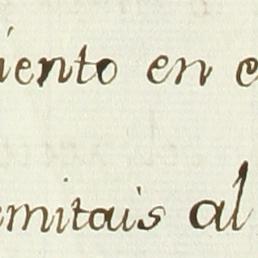 iento en e
emitais al